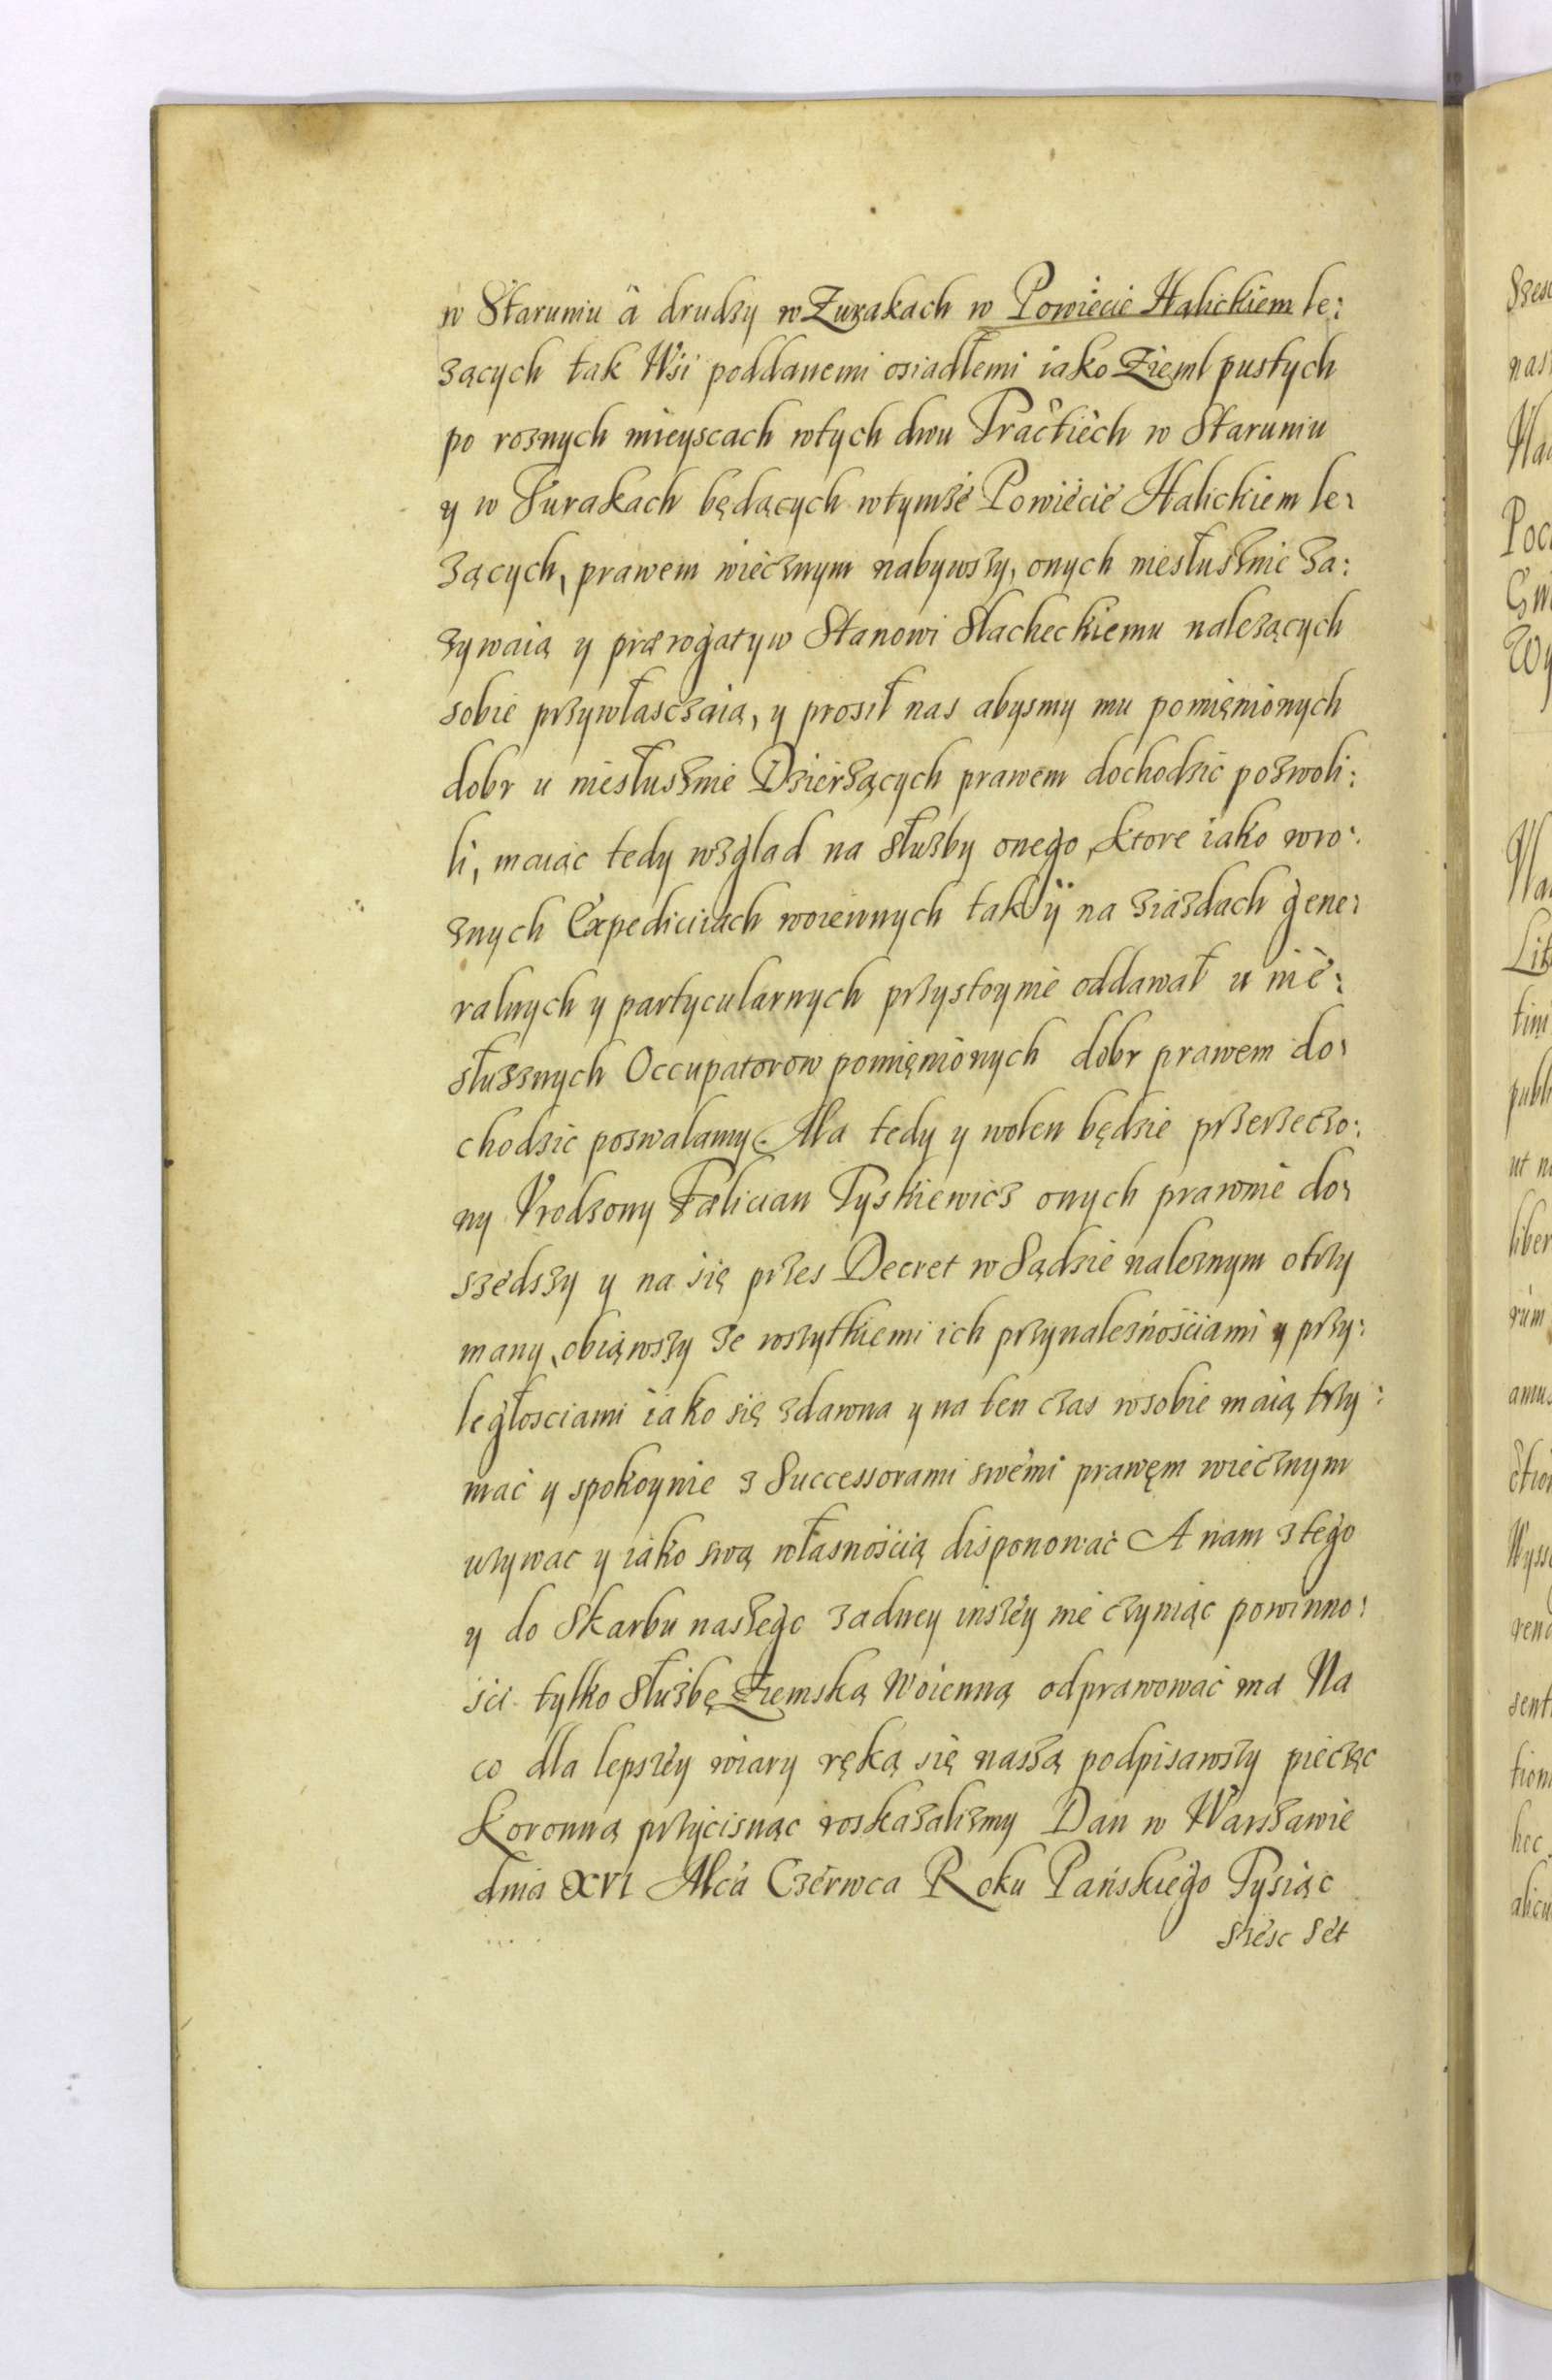 w Staruniu â drudzy w Zurakach w Powiecie Halickiem le:
zących tak Wsi poddanemi osiadłemi iako Zieml pustych
po roznych mieyscach wtych dwu Tractiech w Staruniu
y w Zurakach będących wtymże Powiecie Halickiem le:
zących, prawem wiecznym nabywszy, onych niesłusznie za:
zywaią y prærogatyw Stanowi Slacheckiemu nalezących
sobie przywłasczaią, y prosił nas abysmy mu pomięnionych
dobr u niesłusznie Dzierzących prawem dochodzić pozwoli:
li, maiąc tedy wzgląd na służby onego, ktore iako wro:
znych Expediciiach woiennych tak ÿ na ziazdach gene:
ralnych y partycularnych przystoynie oddawał u nie:
słusznych Occupatorow pomięnionych dobr prawem do:
chodzic pozwalamy. Ma tedy y wolen będzie przerzeczo:
ny Vrodzony Fælician Tyskiewicz onych prawnie do:
szedszy y na się przes Decret w Sądzie naleznym otrzy
many, obiąwszy ze wszytkiemi ich przynalesnościami y przy:
ległosciami iako się zdawna y na ten czas wsobie maią trzy:
mać y spokoynie z Successorami swemi prawęm wiecznym
uzywac y iako swą własnością disponować A nam z tego
y do Skarbu naszego zadney inszey nie czyniąc powinno:
ści tylko służbę Ziemską Woienną odprawować ma Na
co dla lepszey wiary ręką się naszą podpisawszy pieczęc
Koronną przycisnąc roskazalizmy Dan w Warszawie
dnia XVI Mca Czerwca Roku Pańskiego Tysiąc
szesc Set